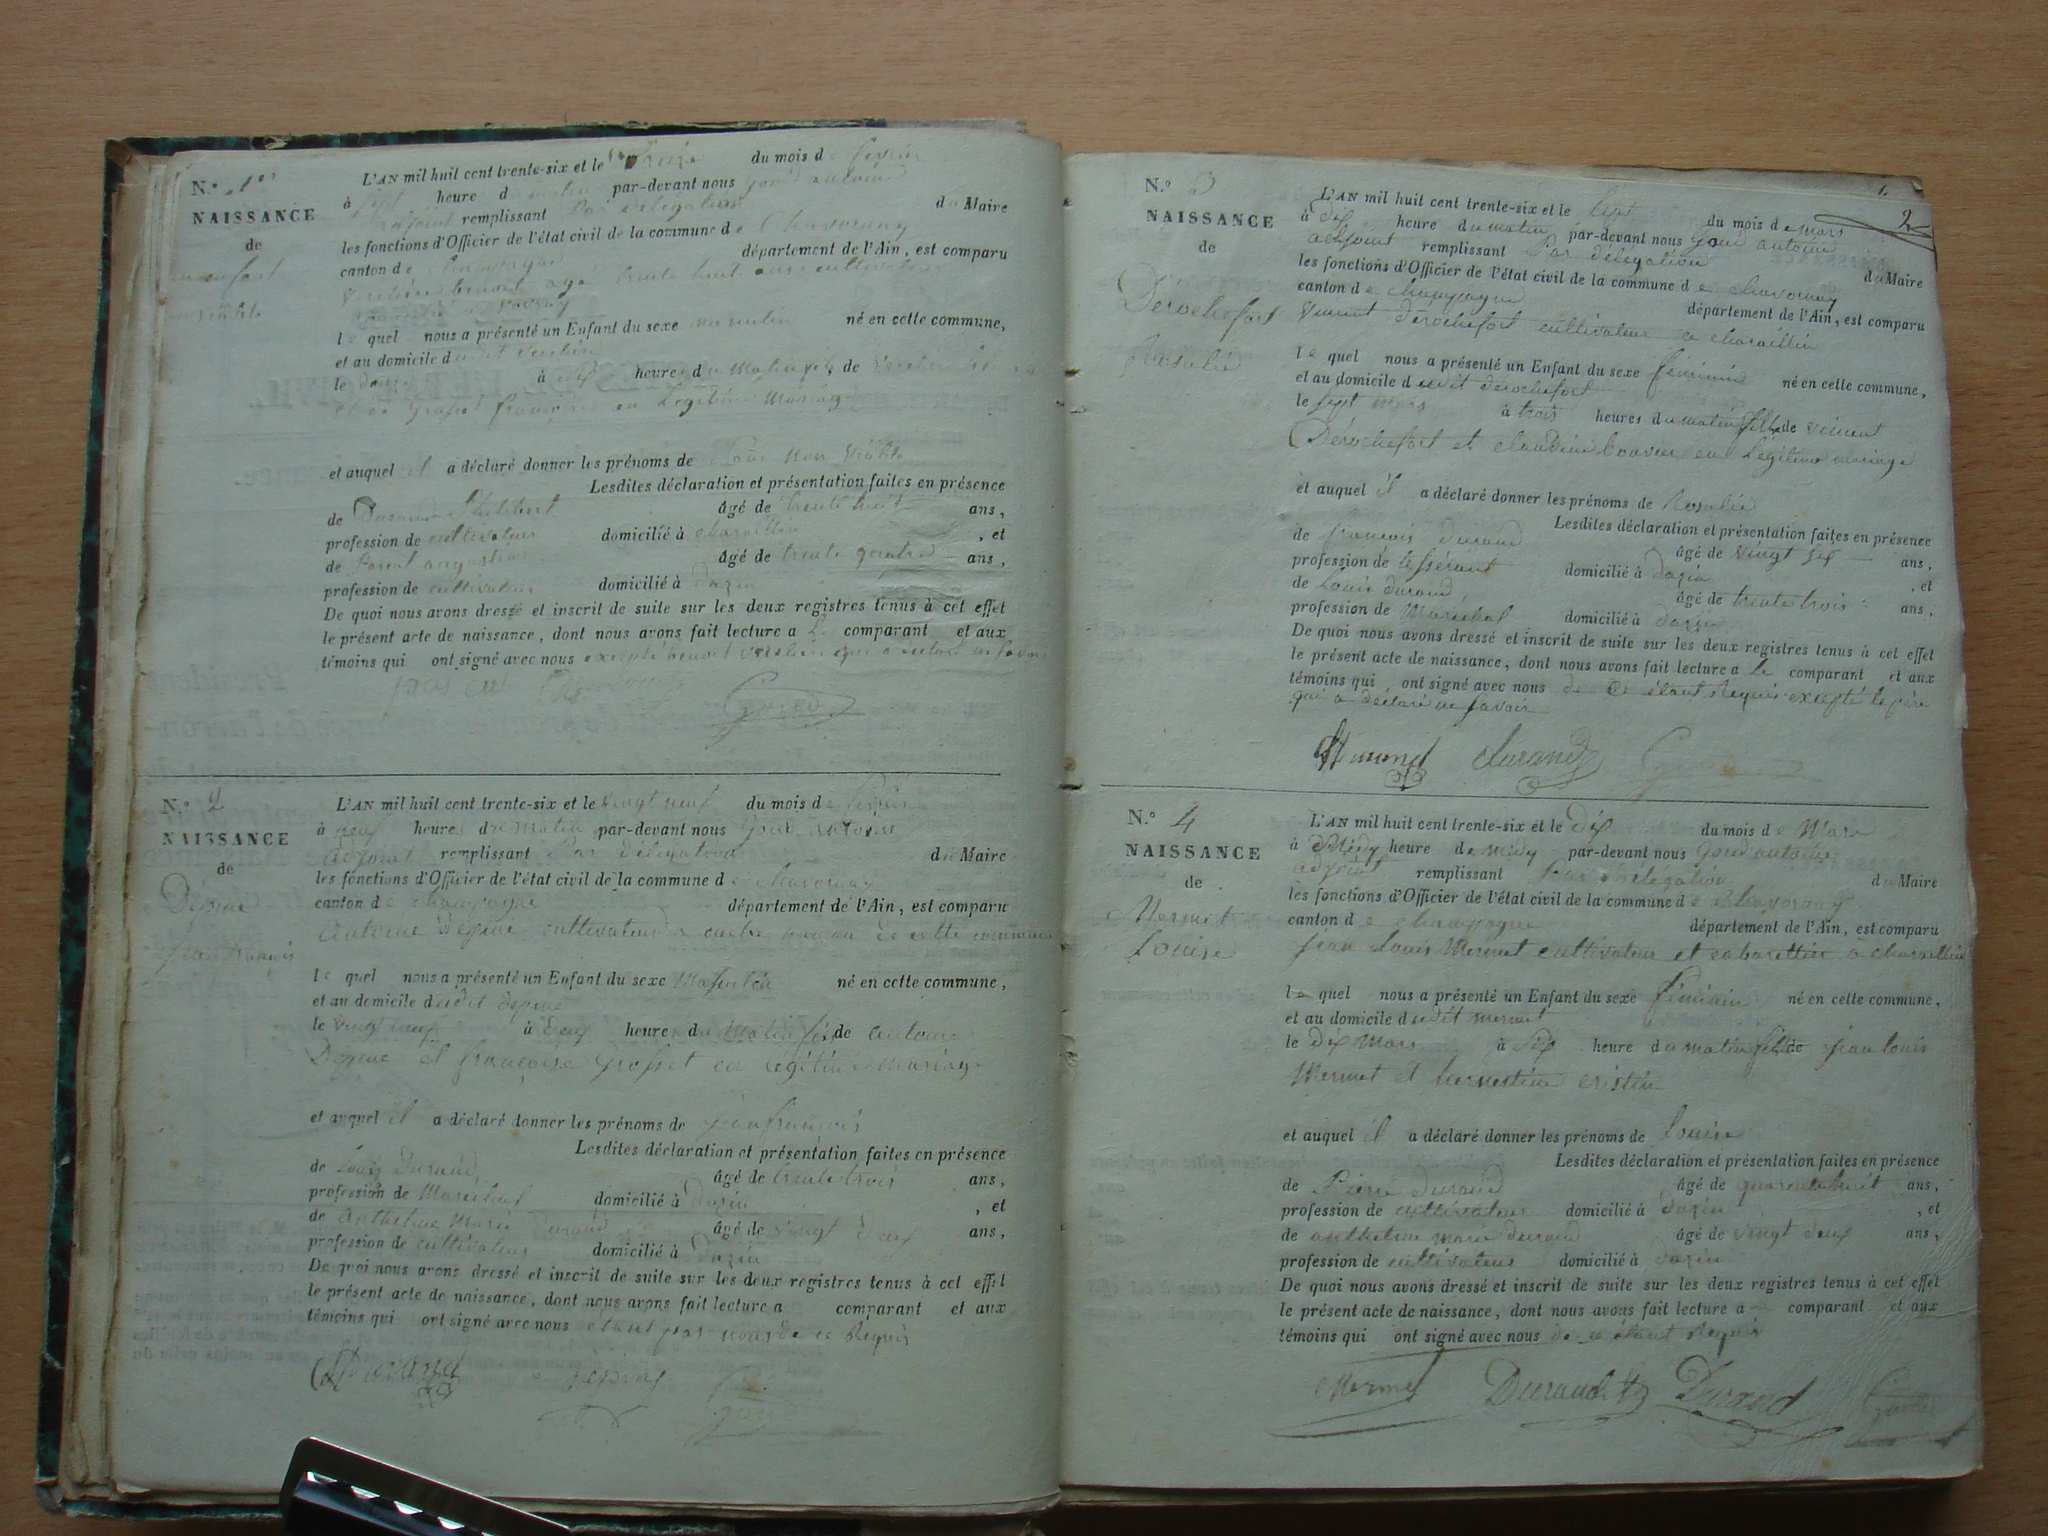 N.º 1er
NAISSANCE
de
enfant
L'AN mil huit cent trente-six et le treize du mois de fevrier
à sept heure du matin par-devant nous Goud antoine
adjoint remplissant Par delegation du Maire
les fonctions d'Officier de l'état civil de la commune de Chavornay
canton de champagne département de l'Ain, est comparu
benoit agé trente huit ans cultivateur
le quel nous a présenté un Enfant du sexe masculin né en cette commune,
et au domicile dudit
le à heures du Matin fils de
françoise en Légitime Mariage
et auquel il a déclaré donner les prénoms de non viable
Lesdites déclaration et présentation faites en présence
de Durand Philibert âgé de trente huit ans,
profession de cultivateur domicilié à charaillin , et
de augustin âgé de trente quatre ans,
profession de cultivateur domicilié à dazin
De quoi nous avons dressé et inscrit de suite sur les deux registres tenus à cet effet
le présent acte de naissance, dont nous avons fait lecture a le comparant et aux
témoins qui ont signé avec nous excepté benoit qui a declaré ne savoir
N.º 2
NAISSANCE
de
Dépine
jean françois
L'AN mil huit cent trente-six et le vingt neuf du mois de fevrier
à neuf heures du Matin par-devant nous Goud antoine
adjoint remplissant Par délégation du Maire
les fonctions d'Officier de l'état civil de la commune de chavornay
canton de champagne département de l'Ain, est comparu
Antoine Dépine cultivateur de cette commune
le quel nous a présenté un Enfant du sexe Masculin né en cette commune,
et au domicile dudit Dépine
le vingt neuf à deux heures du Matin fils de antoine
Depine et françoise grosset en Légitime Mariage
et auquel il a déclaré donner les prénoms de jean françois
Lesdites déclaration et présentation faites en présence
de Louis Durand âgé de trente trois ans,
profession de Maréchal domicilié à dazin , et
de Anthelme Marie Durand âgé de vingt deux ans,
profession de cultivateur domicilié à Dazin
De quoi nous avons dressé et inscrit de suite sur les deux registres tenus à cet effet
le présent acte de naissance, dont nous avons fait lecture a comparant et aux
témoins qui ont signé avec nous étant par nous de ce Requis
Durand
1.
2
N.º 3
NAISSANCE
de
Dérochefort
Rosalie
L'AN mil huit cent trente-six et le sept du mois de mars
à dix heure du matin par-devant nous Goud antoine
adjoint remplissant Par délégation du Maire
les fonctions d'Officier de l'état civil de la commune de chavornay
canton de champagne département de l'Ain, est comparu
vincent dérochefort cultivateur a charaillin
le quel nous a présenté un Enfant du sexe féminin né en cette commune,
et au domicile dudit derochefort
le sept mars à trois heures du matin fille de vincent
Dérochefort et claudine bouvier en Légitime mariage
et auquel il a déclaré donner les prénoms de Rosalie
Lesdites déclaration et présentation faites en présence
de françois durand âgé de vingt six ans,
profession de tissérant domicilié à dazin , et
de Louis durand âgé de trente trois ans,
profession de Maréchal domicilié à dazin
De quoi nous avons dressé et inscrit de suite sur les deux registres tenus à cet effet
le présent acte de naissance, dont nous avons fait lecture a le comparant et aux
témoins qui ont signé avec nous de ce étant Requis excepté le père
qui a déclaré ne savoir
Durand Durand
N.º 4
NAISSANCE
de
Mermet
Louise
L'AN mil huit cent trente-six et le dix du mois de Mars
à Midy heure de midy par-devant nous Goud antoine
adjoint remplissant Par délégation du Maire
les fonctions d'Officier de l'état civil de la commune de Chavornay
canton de champagne département de l'Ain, est comparu
jean Louis Mermet cultivateur et cabarettier a charaillin
le quel nous a présenté un Enfant du sexe féminin né en cette commune,
et au domicile dudit mermet
le dix Mars à six heure du matin fille de jean Louis
Mermet et hernestine cristin
et auquel il a déclaré donner les prénoms de Louise
Lesdites déclaration et présentation faites en présence
de Pierre Durand âgé de quarante huit ans,
profession de cultivateur domicilié à Dazin , et
de anthelme marie durand âgé de vingt deux ans,
profession de cultivateur domicilié à dazin
De quoi nous avons dressé et inscrit de suite sur les deux registres tenus à cet effet
le présent acte de naissance, dont nous avons fait lecture a comparant et aux
témoins qui ont signé avec nous de ce étant Requis
Mermet Durand Durand